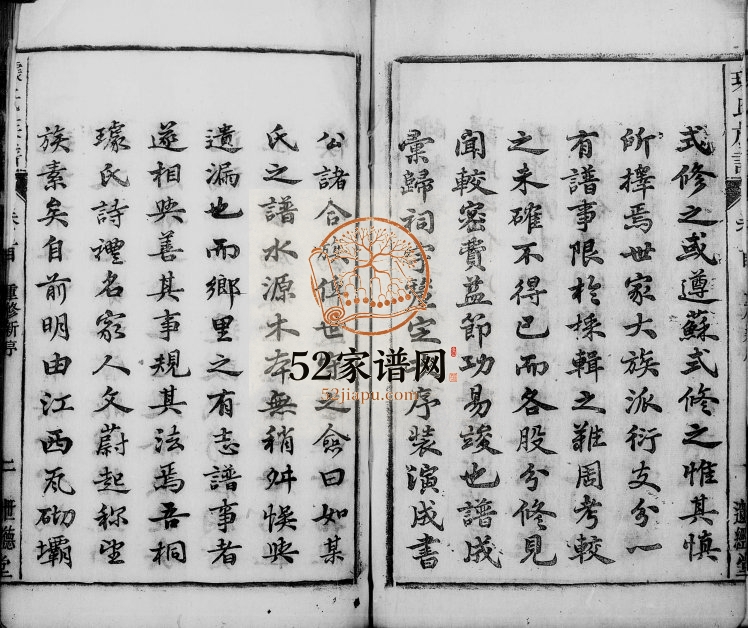 式修之或遵蘇式修之惟其慎
所擇焉世家大族派衍支分一
有譜事限於採輯之難周考較
之未確不得已而各股分修見
聞較密費益節功易竣也譜成
彙歸祠宇釐定
序装演成書
公諸合族傳世
之僉曰如某
氏之譜水源木本無稍舛悞與
遺漏也而鄉里之有志譜事者
遂相與善其事規其法焉吾桐
璩氏詩禮名家人文蔚起称望
族素矣自前明由江西瓦砌壩
氏族譜
重修新序
二
52家谱网
52jiapu.com